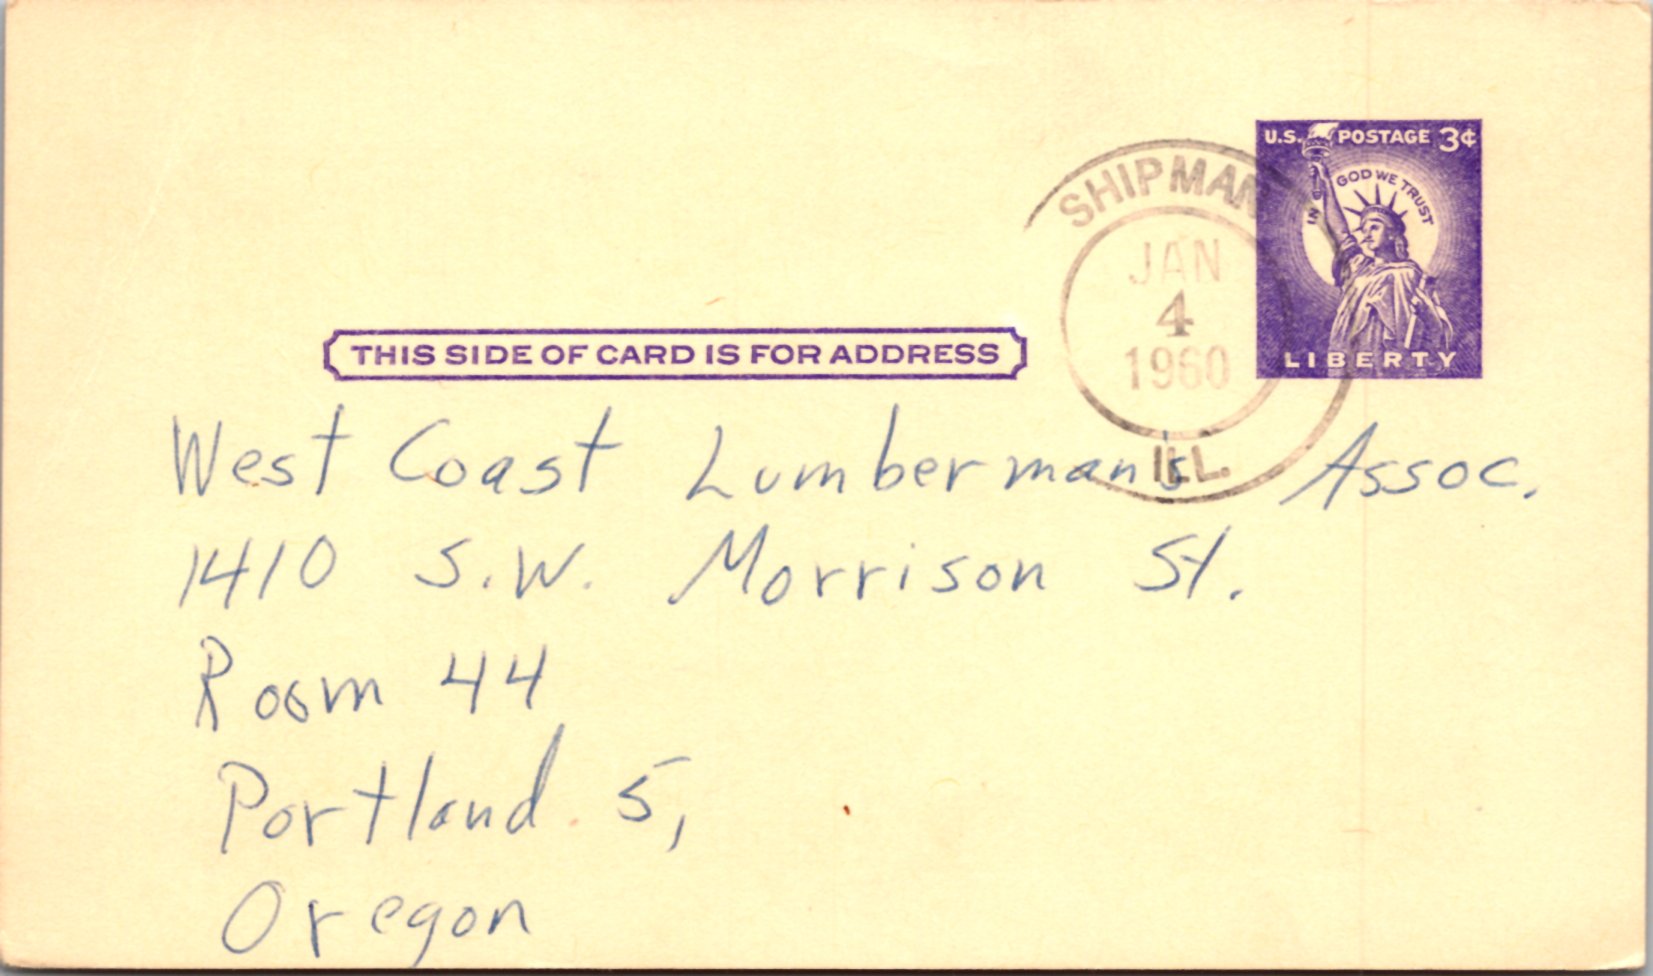 U.S. POSTAGE 3¢
IN GOD WE TRUST
LIBERTY
SHIPMAN
JAN
4
1960
ILL.
THIS SIDE OF CARD IS FOR ADDRESS
West Coast Lumberman's Assoc.
1410 S.W. Morrison St.
Room 44
Portland 5,
Oregon